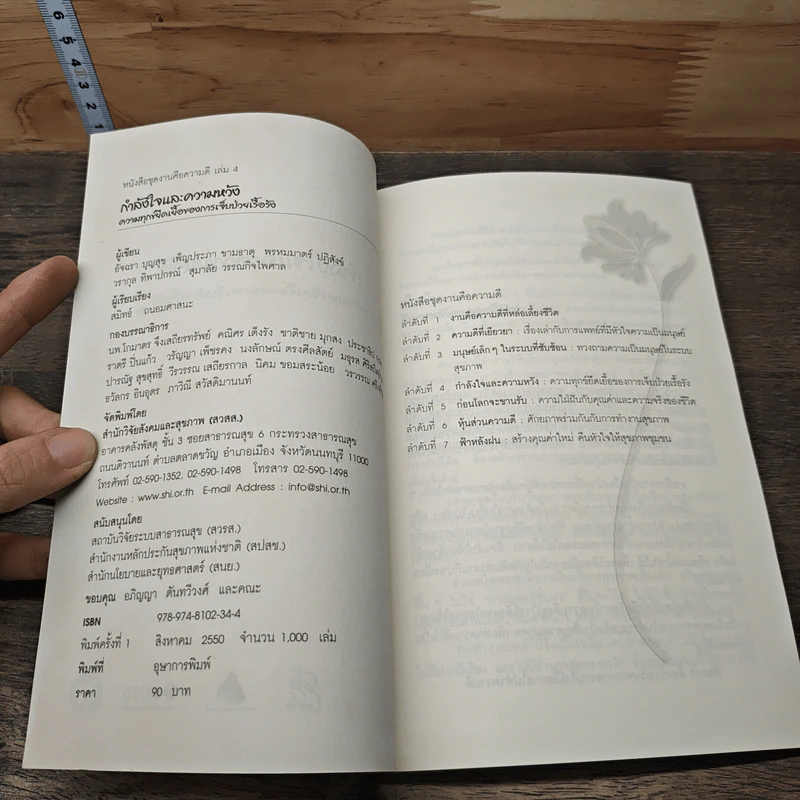 6 5 4 3 2 1
หนังสือชุดงานคือความดี เล่ม 4
กำลังใจและความหวัง
ความทุกข์ยืดเยื้อของการเจ็บป่วยเรื้อรัง
ผู้เขียน
อัจฉรา บุญสุข เพ็ญประภา ขามธาตุ พรหมมาตร์ ปฏิสังข์
วรากุล ทิพาปกรณ์ สุมาลัย วรรณกิจไพศาล
ผู้เรียบเรียง
สมิทธิ์ ถนอมศาสนะ
กองบรรณาธิการ
นพ.โกมาตร จึงเสถียรทรัพย์ คณิศร เต็งรัง ชาติชาย มุกสง ประชาธิป
ราตรี ปิ่นแก้ว วรัญญา เพ็ชรคง นงลักษณ์ ตรงศีลสัตย์ มธุรส
ปารณัฐ สุขสุทธิ์ วีรวรรณ เสถียรกาล นิคม ขอมสระน้อย วรวรรณ
ธวัลกร อินอุตร ภาวิณี สวัสดิมานนท์
จัดพิมพ์โดย
สำนักวิจัยสังคมและสุขภาพ (สวสส.)
อาคารคลังพัสดุ ชั้น 3 ซอยสาธารณสุข 6 กระทรวงสาธารณสุข
ถนนติวานนท์ ตำบลตลาดขวัญ อำเภอเมือง จังหวัดนนทบุรี 11000
โทรศัพท์ 02-590-1352, 02-590-1498 โทรสาร 02-590-1498
Website : www.shi.or.th E-mail Address : info@shi.or.th
สนับสนุนโดย
สถาบันวิจัยระบบสาธารณสุข (สวรส.)
สำนักงานหลักประกันสุขภาพแห่งชาติ (สปสช.)
สำนักนโยบายและยุทธศาสตร์ (สนย.)
ขอบคุณ อภิญญา ตันทวีวงศ์ และคณะ
ISBN 978-974-8102-34-4
พิมพ์ครั้งที่ 1 สิงหาคม 2550 จำนวน 1,000 เล่ม
พิมพ์ที่ อุษาการพิมพ์
ราคา 90 บาท
หนังสือชุดงานคือความดี
ลำดับที่ 1 งานคือความดีที่หล่อเลี้ยงชีวิต
ลำดับที่ 2 ความดีที่เยียวยา : เรื่องเล่ากับการแพทย์ที่มีหัวใจความเป็นมนุษย์
ลำดับที่ 3 มนุษย์เล็กๆ ในระบบที่ซับซ้อน : ทวงถามความเป็นมนุษย์ในระบบ
สุขภาพ
ลำดับที่ 4 กำลังใจและความหวัง : ความทุกข์ยืดเยื้อของการเจ็บป่วยเรื้อรัง
ลำดับที่ 5 ก่อนโลกจะขานรับ : ความใฝ่ฝันกับคุณค่าและความจริงของชีวิต
ลำดับที่ 6 หุ้นส่วนความดี : ศักยภาพร่วมกันกับการทำงานสุขภาพ
ลำดับที่ 7 ฟ้าหลังฝน : สร้างคุณค่าใหม่ คืนหัวใจให้สุขภาพชุมชน